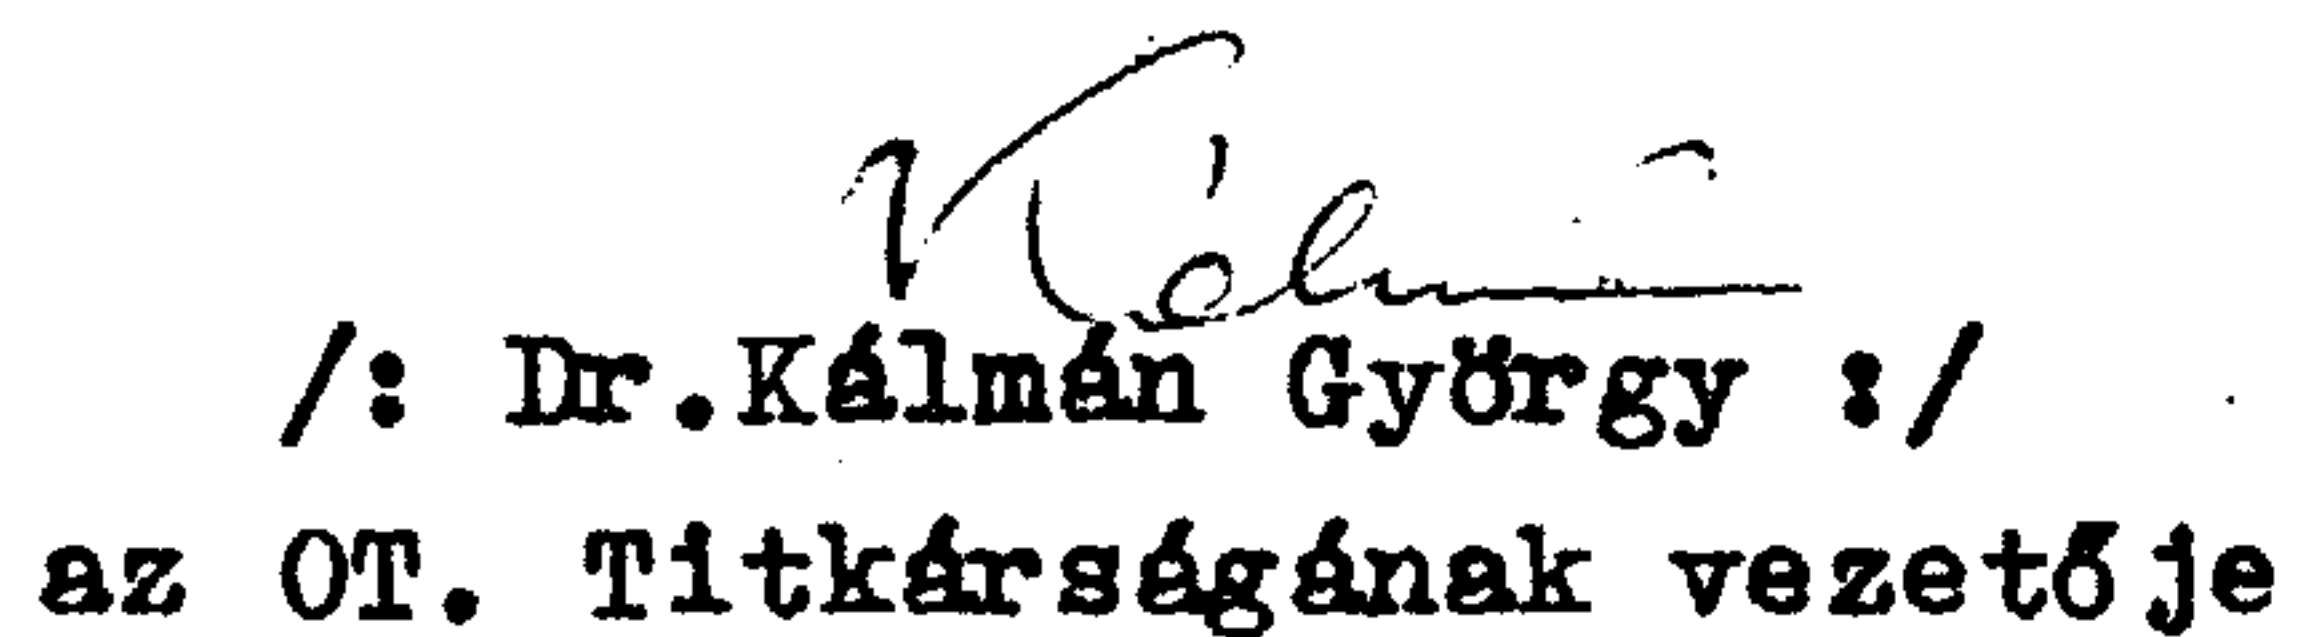 Kálmán
/: Dr.Kálmán György :/
az OT. Titkárságának vezetője